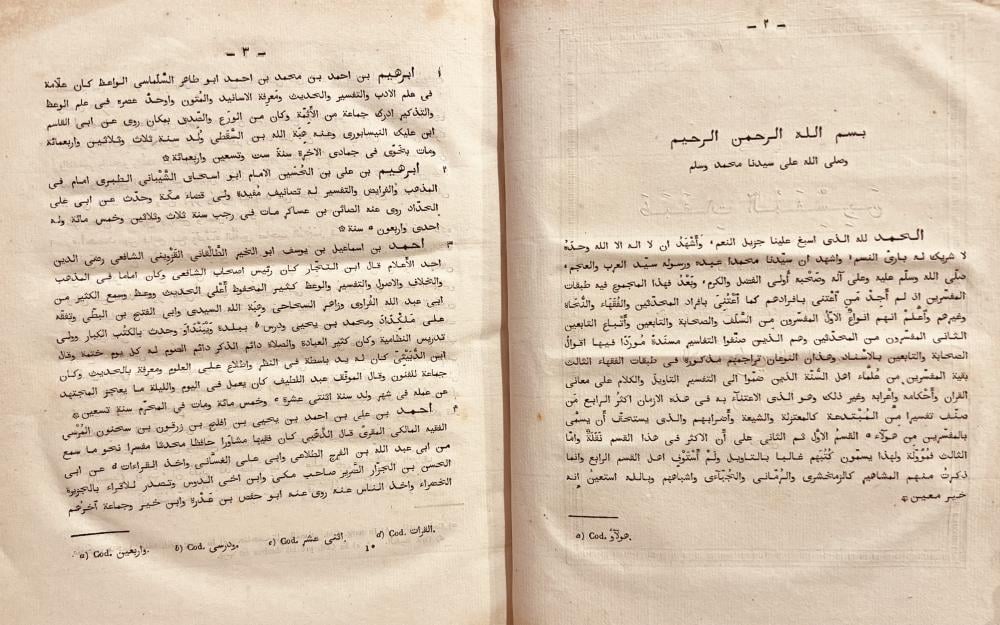 — ٢ —
بسم الله الرحمن الرحيم
وصلى الله على سيدنا محمد وسلم
الحمد لله الذى اسبغ علينا جزيل النعم، وأَشْهَدُ ان لا اله الا الله وحدَهُ
لا شريك له بارئ النسم، واشهد ان سيّدنا محمدا عبده ورسوله سيّد العرب والعاجم،
صلّى الله عليه وعلى آله وصَحْبه أُولى الفضل والكرم، وبَعْدُ فهذا المجموع فيه طبقات
المفسّرين اذ لم أَجِدْ مَن اعْتنى بافرادهم كما اعْتُنِىَ بافراد المحدّثين والفُقَهاء والنُّحَاة
وغيرهم وأَعْلَم انهم انواعٌ الاوّلُ المفسّرون من السَّلَف والصحابة والتابعين وأَتْباع التابعين
الثانى المفسرون من المحدّثين وهم الذين صنّفوا التفاسير مسنَدة مُورَدًا فيها اقوالُ
الصحابة والتابعين بالاسْناد وهذان النوعان تراجمهم مذكورة فى طبقات الفقهاء الثالث
بقية المفسّرين من عُلماء اهل السُّنّة الذين ضمّوا الى التفسير التاويلَ والكلام على معانى
القران وأَحْكامه واعرابه وغير ذلك وهو الذى الاعتناء به فى هذه الازمان اكثرُ الرابع مَن
صنّف تفسيرا من المُبْتدعة كالمعتزلة والشيعة وأَضرابهم والذى يستحقّ أَن يسمّى
بالمفسّرين من هولاء a القسمُ الاوّل ثم الثانى على أَن الاكثر فى هذا القسم نَقَلَةٌ وامّا
الثالث فمُؤَوِّلة ولهذا يسمّون كُتُبَهم غالبا بالتاويل ولَمْ أَسْتَوفِ اهل القسم الرابع وانما
ذكرتُ منهم المشاهير كالزمخشرى والرُّمّانى والجُبّاءى واشباههم وبالله استعينُ إنه
خير معين ۞
a) Cod. هولآؤ.
— ٣ —
١ ابرهيم بن احمد بن محمد بن احمد ابو طاهر السَّلَماسى الواعظ كان علّامة
فى علم الادب والتفسير والحديث ومَعرِفة الاسانيد والمُتون واوحدَ عصره فى علم الوعظ
والتذكير ادرك جماعة من الأَئِمّة وكان من الوَرَع والصّدق بمكان روى عن ابى القاسم
ابن عليك النيسابورى وعنه هِبَة الله بن السَّقَطى وُلد سنة ثلاث وثلاثين واربعمائة
ومات بخُوَى فى جمادى الاخرة سنة ست وتسعين واربعمائة ۞
٢ ابرهيم بن على بن الحُسَين الامام ابو اسحاق الشَّيْبانى الطبرى امام فى
المذهب والفرايض والتفسير له تصانيف مُفيدة ولى قضاء مكّة وحدّث عن ابى على
الحدّاد روى عنه الصائن بن عساكر مات فى رجب سنة ثلاث وثلاثين وخمس مائة وله
احدى واربعون a سنة ۞
٣ احمد بن اسماعيل بن يوسف ابو الخير الطَّالَقانى القَزْوِينى الشافعى رضى الدين
احد الأَعلام قال ابن النجّار كان رئيس اصحاب الشافعى وكان اماما فى المذهب
والخلاف والاصول والتفسير والوعظ كثير المحفوظ أَعْلَى الحديث ووعظ وسمع الكثير من
ابى عبد الله الفُراوى وزاهر السحاحى وهِبَة الله السيدى وابى الفتح بن البطّى وتفقّه
على مَلَكْداذ ومحمد بن يحيى ودرس b ببلده وبَبَغْدَاذ وحدث بالكُتُب الكبار وولى
تدريس النظامية وكان كثير العبادة والصلاة دائم الذكر دائم الصوم له كل يوم ختمة وقال
ابن الدُّبَيْثِىّ كان له يد باسطة فى النظر واطّلاع على العلوم ومعرفة بالحديث وكان
جماعة للفنون وقال الموفّق عبد اللطيف كان يعمل فى اليوم والليلة ما يعجز المجتهد
عن عمله فى شهر ولد سنة اثنتى عشرة c وخمس مائة ومات فى المحرّم سنة تسعين ۞
٤ احمد بن على بن احمد بن يحيى بن افلح بن رزقون بن سحنون المُرْسى
الفقيه المالكى المقرئ قال الذَّهَبى كان فقيها مشاوَرا حافظا محدثا مفسرا نحويا سمع
من ابى عبد الله بن الفرج الطلاعى وابى على الغسّانى واخذ القراءات d عن ابى
الحسن بن الجزّار الضّرير صاحب مكى وابن اخى الدوس وتصدر للاقراء بالجزيرة
الخضراء واخذ الناس عنه روى عنه ابو حفص بن عُذْرة وابن خير وجماعة آخرُهم
a) Cod. واربعين. b) Cod. ودرسى. c) Cod. اثنى عشر. d) Cod. القرات.
1*